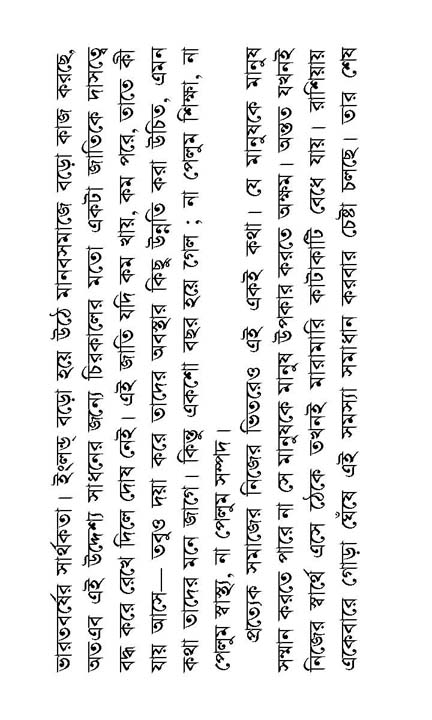 ভারতবর্ষের সার্থকতা। ইংলন্ড্ বড়ো হয়ে উঠে মানবসমাজে বড়ো কাজ করছে,
অতএব এই উদ্দেশ্য সাধনের জন্যে চিরকালের মতো একটা জাতিকে দাসত্বে
বদ্ধ করে রেখে দিলে দোষ নেই। এই জাতি যদি কম খায়, কম পরে, তাতে কী
যায় আসে— তবুও দয়া করে তাদের অবস্থার কিছু উন্নতি করা উচিত, এমন
কথা তাদের মনে জাগে। কিন্তু একশো বছর হয়ে গেল ; না পেলুম শিক্ষা, না
পেলুম স্বাস্থ্য, না পেলুম সম্পদ।
প্রত্যেক সমাজের নিজের ভিতরেও এই একই কথা। যে মানুষকে মানুষ
সম্মান করতে পারে না সে মানুষকে মানুষ উপকার করতে অক্ষম। অন্তত যখনই
নিজের স্বার্থে এসে ঠেকে তখনই মারামারি কাটাকাটি বেধে যায়। রাশিয়ায়
একেবারে গোড়া ঘেঁষে এই সমস্যা সমাধান করবার চেষ্টা চলছে। তার শেষ